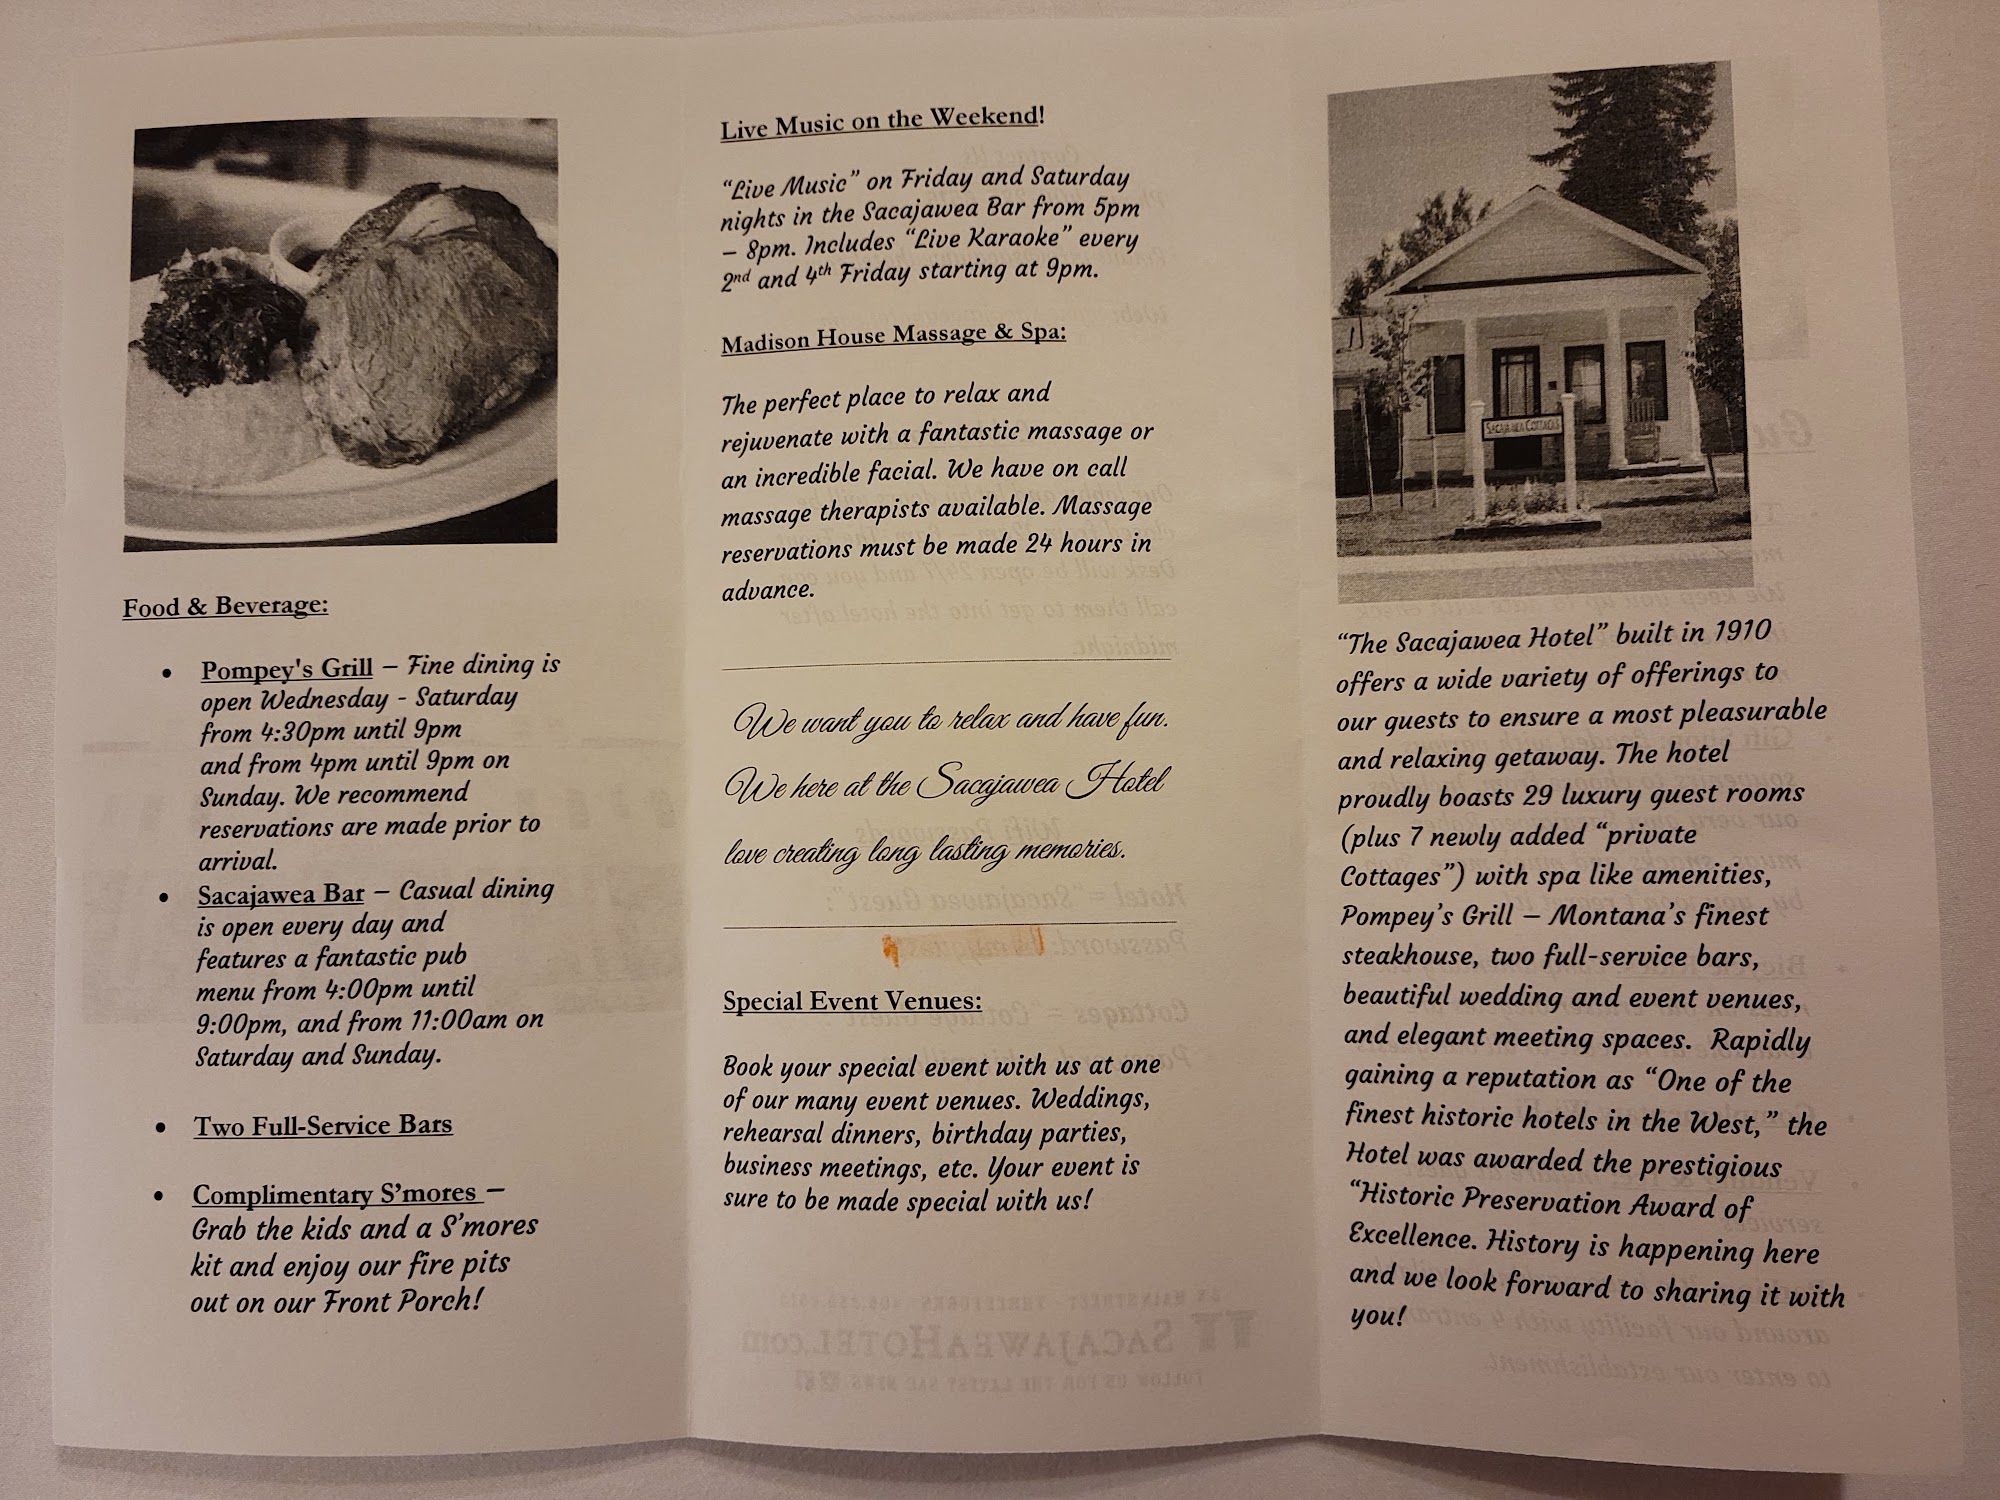 Food & Beverage:
• Pompey's Grill – Fine dining is
open Wednesday - Saturday
from 4:30pm until 9pm
and from 4pm until 9pm on
Sunday. We recommend
reservations are made prior to
arrival.
• Sacajawea Bar – Casual dining
is open every day and
features a fantastic pub
menu from 4:00pm until
9:00pm, and from 11:00am on
Saturday and Sunday.
• Two Full-Service Bars
• Complimentary S'mores –
Grab the kids and a S'mores
kit and enjoy our fire pits
out on our Front Porch!
Live Music on the Weekend!
“Live Music” on Friday and Saturday
nights in the Sacajawea Bar from 5pm
– 8pm. Includes “Live Karaoke” every
2nd and 4th Friday starting at 9pm.
Madison House Massage & Spa:
The perfect place to relax and
rejuvenate with a fantastic massage or
an incredible facial. We have on call
massage therapists available. Massage
reservations must be made 24 hours in
advance.
We want you to relax and have fun.
We here at the Sacajawea Hotel
love creating long lasting memories.
Special Event Venues:
Book your special event with us at one
of our many event venues. Weddings,
rehearsal dinners, birthday parties,
business meetings, etc. Your event is
sure to be made special with us!
SACAJAWEA COTTAGES
“The Sacajawea Hotel” built in 1910
offers a wide variety of offerings to
our guests to ensure a most pleasurable
and relaxing getaway. The hotel
proudly boasts 29 luxury guest rooms
(plus 7 newly added “private
Cottages”) with spa like amenities,
Pompey's Grill – Montana's finest
steakhouse, two full-service bars,
beautiful wedding and event venues,
and elegant meeting spaces. Rapidly
gaining a reputation as “One of the
finest historic hotels in the West,” the
Hotel was awarded the prestigious
“Historic Preservation Award of
Excellence. History is happening here
and we look forward to sharing it with
you!